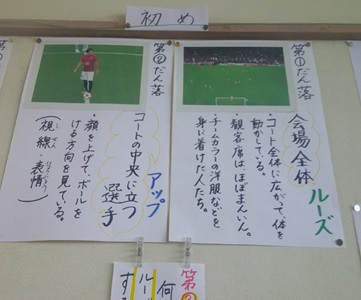 初め
第①だん落
会場全体
ルーズ
・コート全体に広がって、体を
動かしている。
・観客席は、ほぼまんいん。
・チームカラーの洋服などを
身に着けた人たち。
第②だん落
コートの中央に立つ
選手
アップ
・顔を上げて、ボールを
ける方向を見ている。
(視線 表情)
しせん
第
何
ルー
す
第